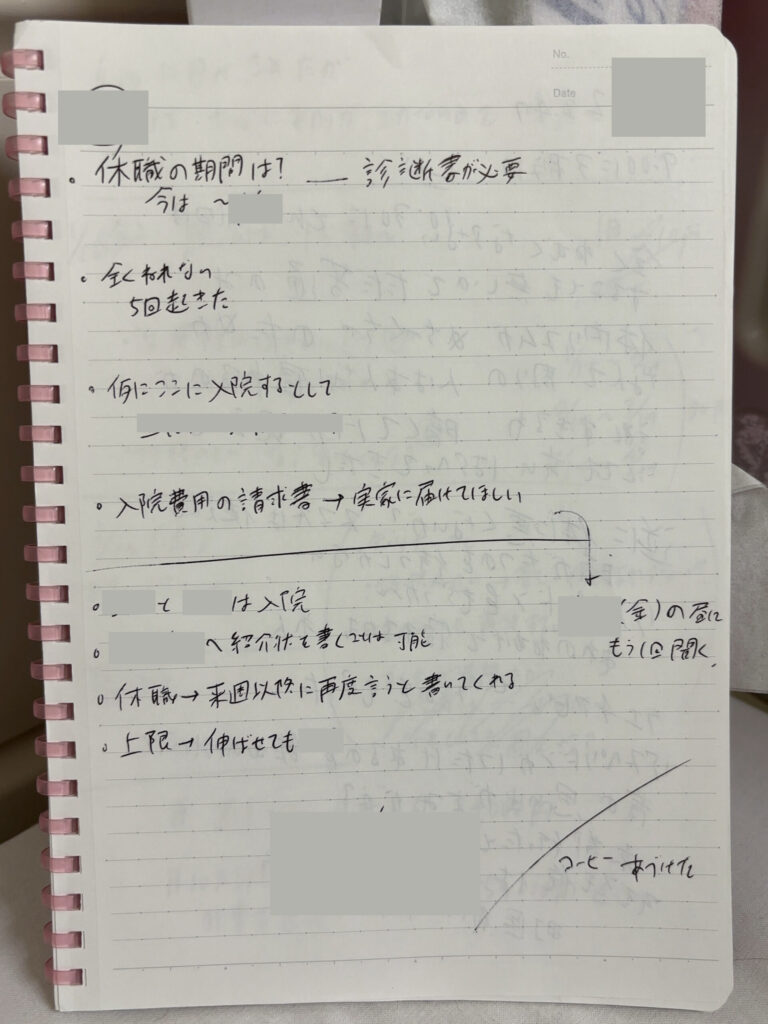 No.
Date
・休職の期間は? — 診断書が必要
今は 〜
・全くねれない
5回起きた
・仮にここに入院するとして
・入院費用の請求書 → 実家に届けてほしい
。と は入院
。へ紹介状を書くことは可能
(金)の昼に
もう1回聞く
。休職→来週以降に再度言うと書いてくれる
。上限→伸ばせても
コーヒー あづけた